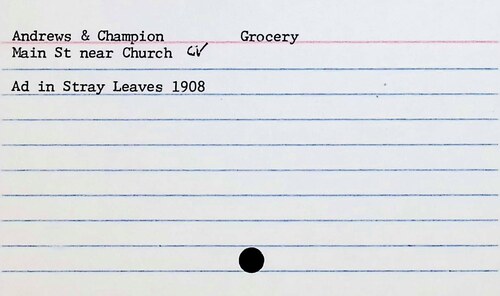 Andrews & Champion Grocery
Main St near Church CV
Ad in Stray Leaves 1908